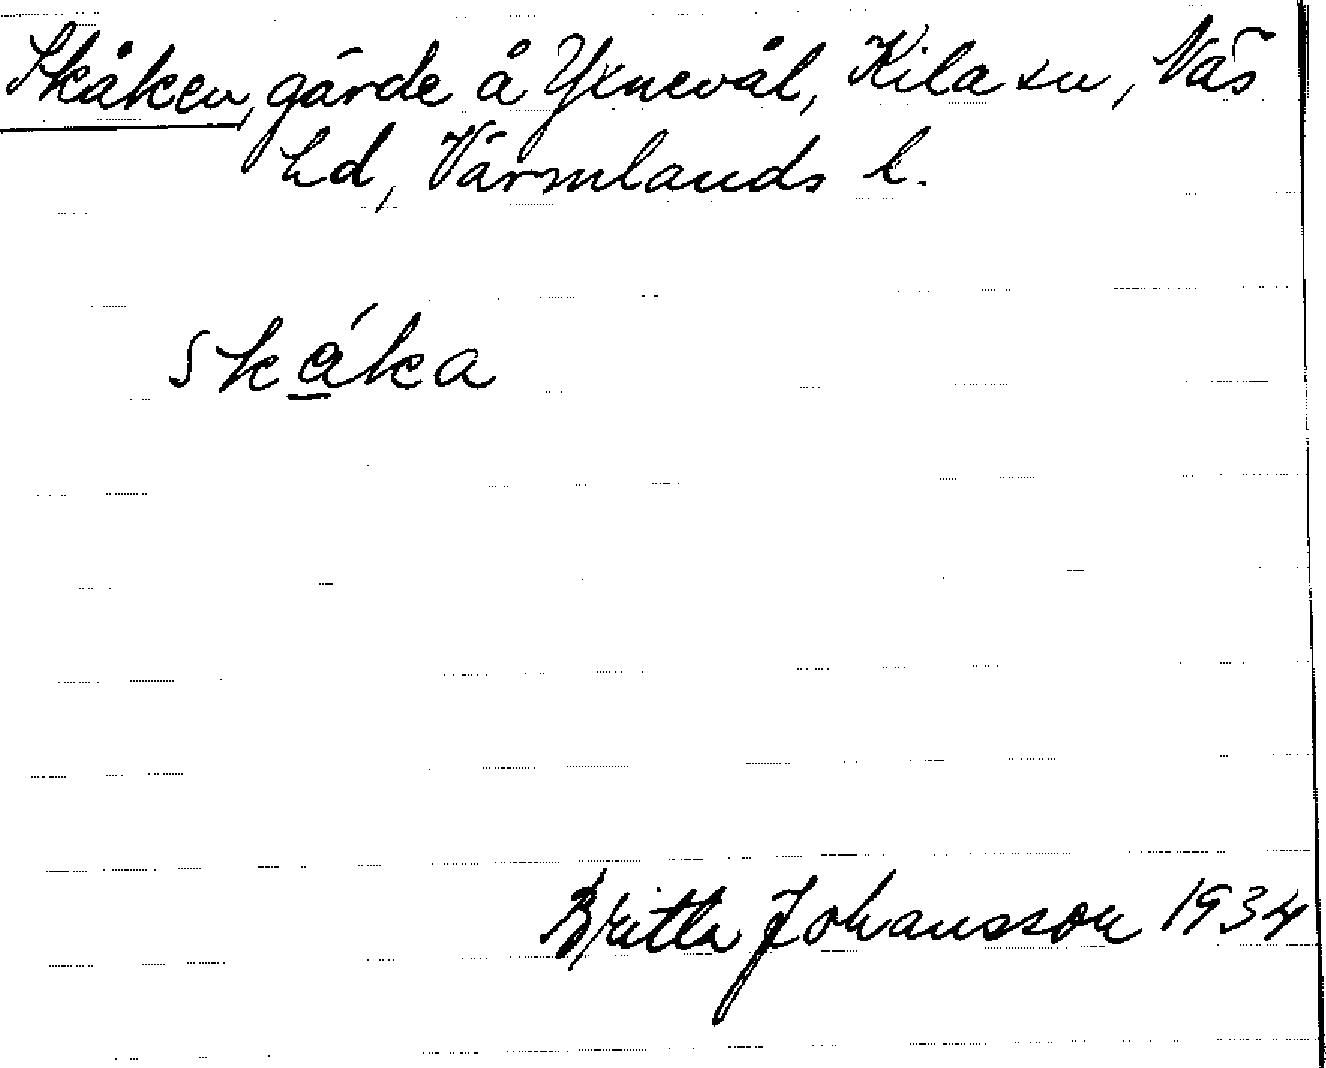 Skåken, gärde å Yxnevål, Kila sn, Näs
hd, Värmlands l.
skåka
Britta Johansson 1934